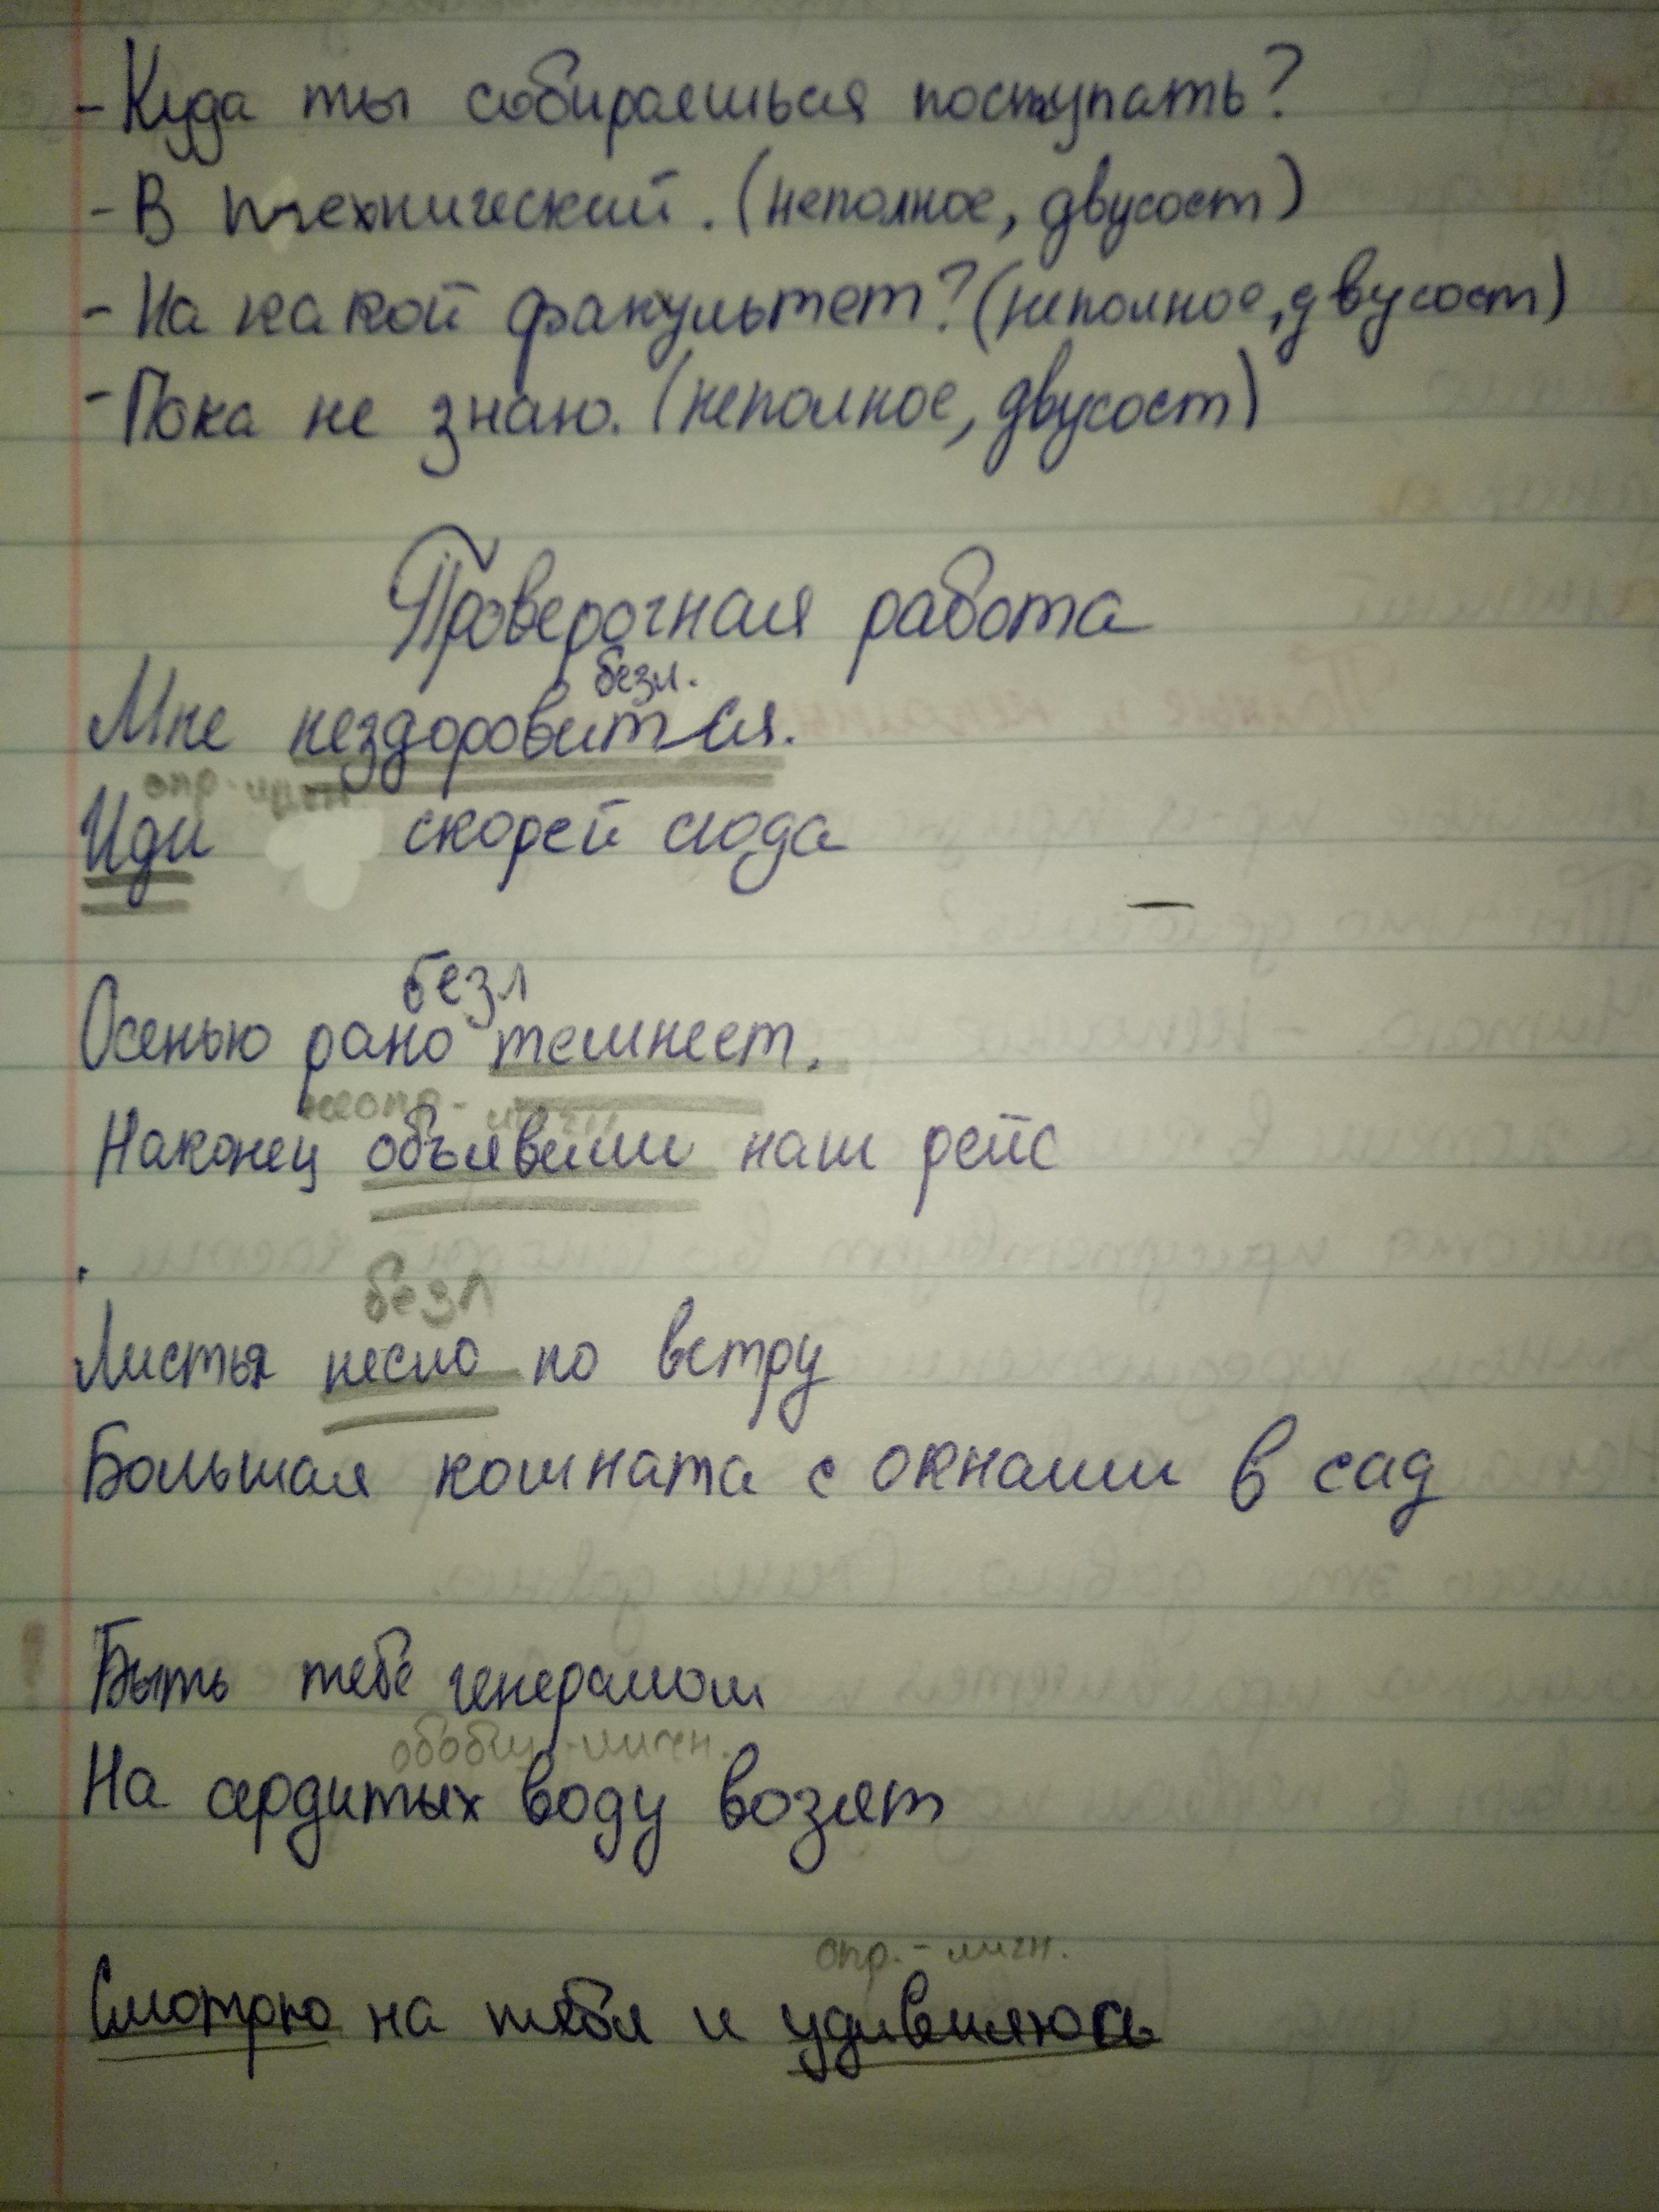 - Куда ты собираешься поступать?
- В технический. (неполное, двусост)
- На какой факультет? (неполное, двусост)
- Пока не знаю. (неполное, двусост)
Проверочная работа
безл.
Мне нездоровится.
опр-личн
Иди скорей сюда
безл
Осенью рано темнеет.
неопр-личн
Наконец объявили наш рейс
безл
Листья несло по ветру
Большая комната с окнами в сад
Быть тебе генералом
обобщ-личн.
На сердитых воду возят
опр.-личн.
Смотрю на тебя и удивляюсь